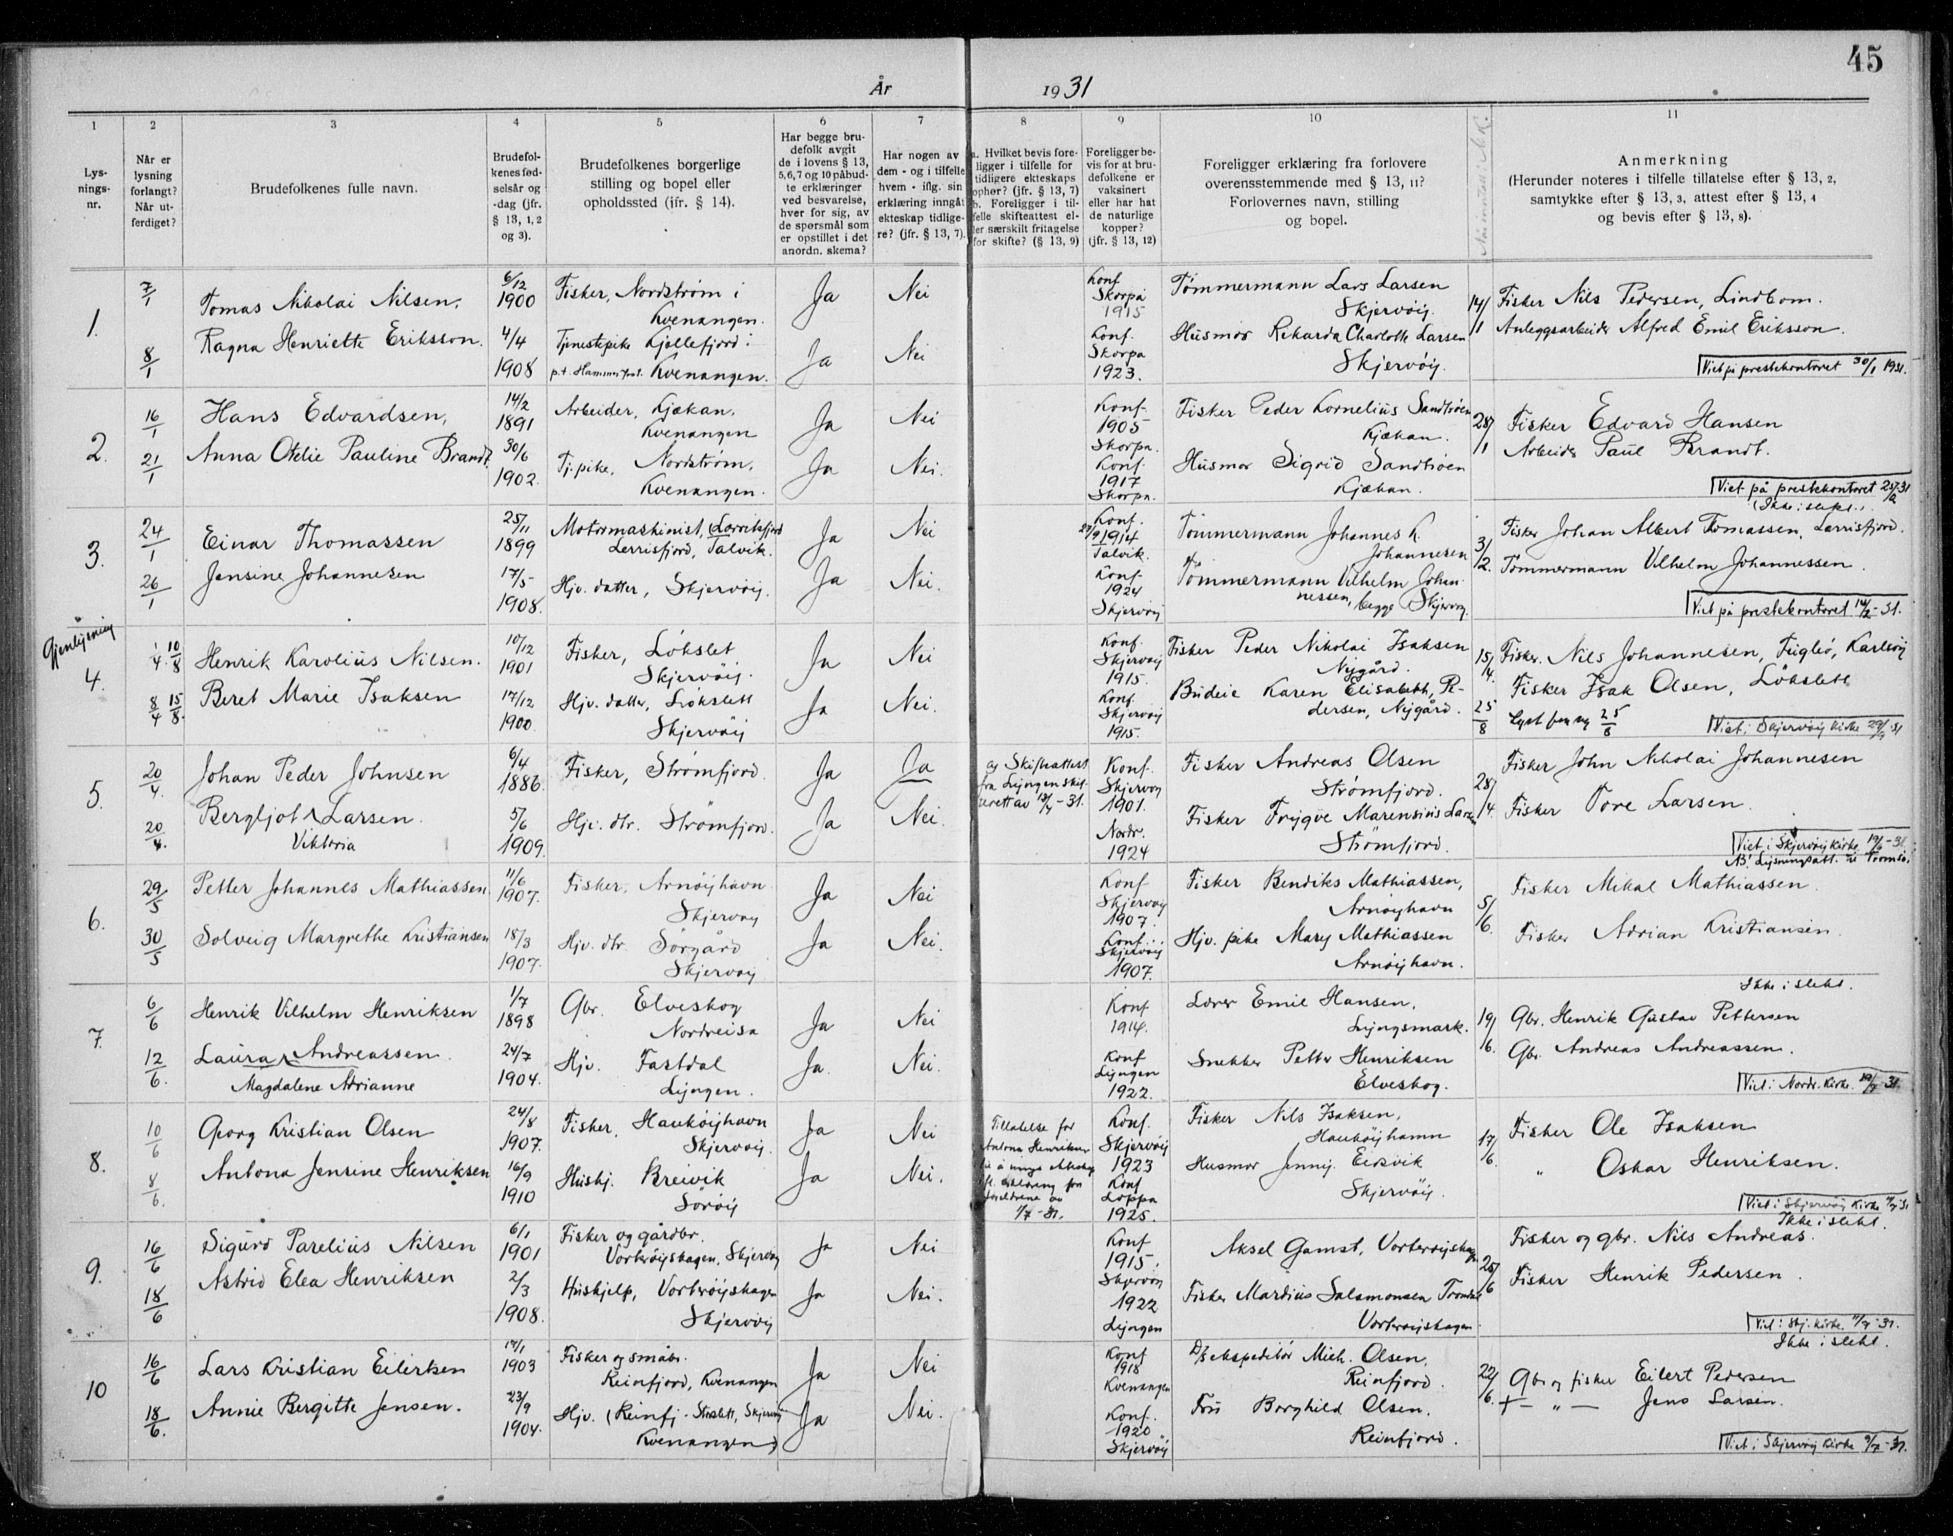 45
År 1931
1 2 3 4 5 6 7 8 9 10 11
Lys-
nings-
nr.
Når er
lysning
forlangt?
Når ut-
ferdiget?
Brudefolkenes fulle navn.
Brudefol-
kenes fød-
selsår og
-dag (jfr.
§ 13, 1, 2
og 3).
Brudefolkenes borgerlige
stilling og bopel eller
opholdssted (jfr. § 14).
Har begge bru-
defolk avgit
de i lovens § 13,
5,6,7 og 10 påbud-
te erklæringer
ved besvarelse,
hver for sig, av
de spørsmål som
er opstillet i det
anordn. skema?
Har nogen av
dem - og i tilfelle
hvem - iflg. sin
erklæring inngåt
ekteskap tidlige-
re? (jfr. § 13, 7).
a. Hvilket bevis fore-
ligger i tilfelle for
tidligere ekteskaps
ophør? (jfr. § 13, 7)
b. Foreligger i til-
felle skifteattest el-
ler særskilt fritagelse
for skifte? (§ 13, 9)
Foreligger be-
vis for at bru-
defolkene er
vaksinert
eller har hat
de naturlige
kopper?
(jfr. § 13, 12)
Foreligger erklæring fra forlovere
overensstemmende med § 13, 11?
Forlovernes navn, stilling
og bopel.
Anmerkning
(Herunder noteres i tilfelle tillatelse efter § 13, 2,
samtykke efter § 13, 3, attest efter § 13, 4
og bevis efter § 13, 8).
1.
7/1
Tomas Nikolai Nilsen.
6/12
1900
Fisker, Nordstrøm i
Kvenangen.
Ja
Nei
Konf
Skorpa
1915
Tømmermann Lars Larsen
Skjervøy.
14/1
Fisker Nils Pedersen, Lindbom.
8/1
Ragna Henriette Eriksson.
4/4
1908
Tjenestepike Kjellefjord i
p.t. Hammerfest. Kvenangen.
Ja
Nei
Konf.
Skorpa
1923.
Husmor Rikarda Charlotte Larsen
Skjervøy.
Anleggsarbeider Alfred Emil Eriksson.
Viet på prestekontoret 30/1 1931.
2.
16/1
Hans Edvardsen,
14/2
1891
Arbeider, Kjækan,
Kvenangen
Ja
Nei
Konf.
1905
Skorpa.
Fisker Peder Kornelius Sandtrøen
Kjækan.
28/1
Fisker Edvard Hansen
21/1
Anna Otelie Pauline Brandt
30/6
1902.
Tj.pike, Nordstrøm,
Kvenangen.
Ja
Nei.
Konf.
1917
Skorpa.
Husmor Sigrid Sandtrøen
Kjækan.
Arbeider Paul Brandt.
Viet på prestekontoret
(Ikke i slekt.
3.
24/1
Einar Thomassen
25/11
1899
Motormaskinist, (Lerrisfjord
Lerrisfjord, Talvik.
Ja
Nei
Konf.
1914
Talvik.
Tømmermann Johannes K.
Johannesen
3/2.
Fisker Johan Albert Tomassen, Lerrisfjord.
26/1
Jensine Johannesen
17/5
1908.
Hjv. datter, Skjervøy.
Ja
Nei.
Konf.
1924
Skjervøy
Tømmermann Vilhelm Johan-
nessen, begge Skjervøy.
Tømmermann Vilhelm Johannessen.
Viet på prestekontoret 14/2-31.
Gjenlysning
4.
1/4. 10/8
Henrik Karolius Nilsen.
10/12
1901
Fisker, Løkslet
Skjervøy.
Ja
Nei
Konf.
Skjervøy
1915.
Fisker Peder Nikolai Isaksen
Nygård.
15/4.
Fisker. Nils Johannesen, Fuglø, Karlsøy
8/4 15/8.
Beret Marie Isaksen
17/12
1900
Hjv. datter, Løkslett
Skjervøy
Ja
Nei.
Konf.
Skjervøy
1915.
Budeie Karen Elisabeth, Pe-
dersen, Nygård.
25/8
Fisker Isak Olsen, Løkslett
Viet i Skjervøy kirke
5.
20/4.
Johan Peder Johnsen
6/4
1886.
Fisker, Strømfjord.
Ja
Ja
og Skifteattest
fra Lyngen skif-
terett av
Konf.
Skjervøy
1901.
Fisker Andreas Olsen
Strømfjord.
28/4.
Fisker John Nikolai Johannesen
20/4.
Bergljot Larsen.
Viktoria
5/6
1909.
Hjv. dtr. Strømfjord.
Ja
Nei.
Nordr.
1924
Fisker Trygve Marensius Larsen
Strømfjord.
Fisker Tore Larsen.
Viet i Skjervøy kirke 19/6-31.
6.
29/5
Petter Johannes Mathiassen
11/6
1907.
Fisker, Arnøyhavn
Skjervøy
Ja
Nei
Konf
Skjervøy
1907.
Fisker Bendiks Mathiassen,
Arnøyhavn
5/6.
Fisker Mikal Mathiassen.
30/5
Solveig Margrethe Kristiansen
18/3
1907.
Hjv. dtr. Sørgård
Skjervøy
Ja
Nei.
Konf.
Skjervøy
1907.
Hjv. pike Mary Mathiassen
Arnøyhavn.
Fisker Adrian Kristiansen.
7.
6/6
Henrik Vilhelm Henriksen
1/7
1898
Gbr. Elveskog
Nordreisa
Ja
Nei
Konf
1914.
Lærer Emil Hansen,
Lyngsmark.
19/6.
Ikke i slekt.
Gbr. Henrik Gustav Pettersen
12/6.
Laura Andreassen.
Magdalene Adrianne
24/7
1904.
Hjv. Fastdal
Lyngen.
Ja.
Nei.
Konf
Lyngen
1922.
Snekker Petter Henriksen
Elveskog.
Gbr. Andreas Andreassen.
Viet i Nordr. kirke.
8.
10/6
Georg Kristian Olsen
24/8
1907.
Fisker, Haukøyhavn
Skjervøy.
Ja
Nei
Tillatelse for
Antona Henriksen
til å inngå ekteskap
ifl. erklæring fra
foreldrene av
1/7-31.
Konf.
Skjervøy
1923
Fisker Nils Isaksen,
Haukøyhamn
17/6.
Fisker Ole Isaksen
8/6.
Antona Jensine Henriksen
16/9
1910
Hushj. Breivik
Sørøy
Ja
Nei.
Konf
Loppa
1925.
Husmor Jenny Eidsvik
Skjervøy.
" Oskar Henriksen.
Viet i Skjervøy kirke
9.
16/6
Sigurd Parelius Nilsen
6/1
1901
Fisker og gårdbr.
Vorterøyskagen, Skjervøy
Ja
Nei
Konf
1915.
Skjervøy
Aksel Gamst, Vorterøyskagen
25/6
Ikke i slekt.
Fisker og gbr. Nils Andreas.
18/6
Astrid Elea Henriksen
2/3
1908.
Hushjelp, Vorterøyskagen
Skjervøy
Ja
Nei.
1922
Lyngen
Fisker Mardius Salamonsen
Vorterøyskagen.
Fisker Henrik Pedersen.
Viet i Skj. kirke.
10
16/6
Lars Kristian Eilertsen
17/1
1903
Fisker og småbr.
Reinfjord, Kvenangen
Ja
Nei
Konf
1918
Kvenangen
D/s ekspeditør Mich. Olsen,
Reinfjord.
22/6.
Ikke i slekt.
Gbr og fisker Eilert Pedersen
18/6.
Annie Bergitte Jensen.
23/9
1904.
Hjv. (Reinfj. Skjervøy
Kvenangen)
Ja
Nei.
Konf.
1920
Skjervøy
Fru Borghild Olsen,
Reinfjord.
— " — Jens Larsen.
Viet i Skjervøy kirke 9/7-31.